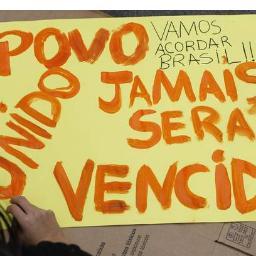 POVO
UNIDO
JAMAIS
SERÁ
VENCID
VAMOS
ACORDAR
BRASIL!!